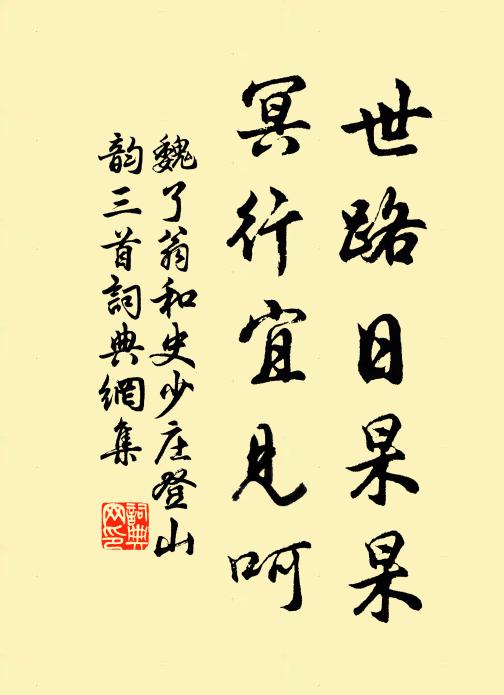 世路日杲杲
冥行宜見呵
魏了翁和史少庄登山
韵三首詞典網集
詞典网印